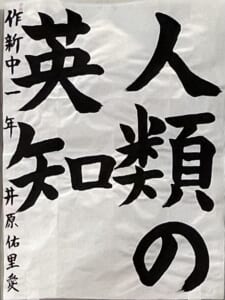 人類の
英知
作新中一年 井原佑里愛